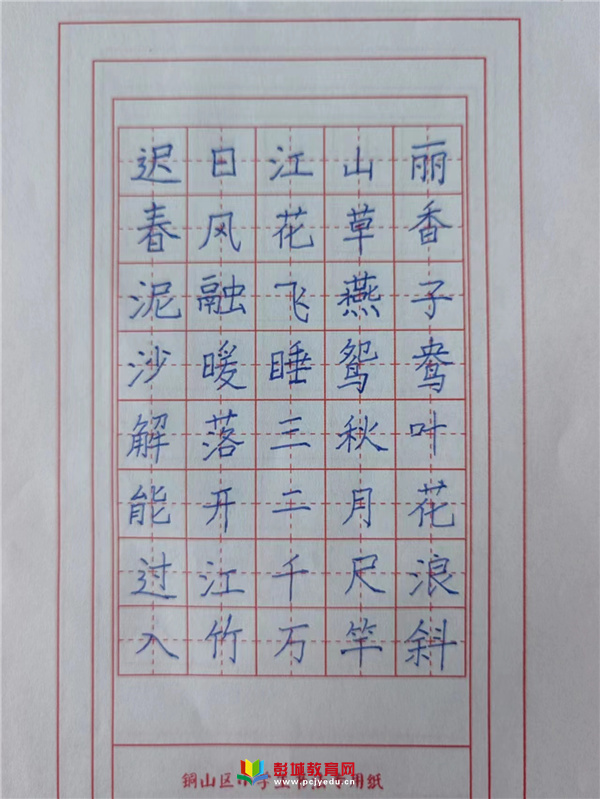 迟日江山丽
春风花草香
泥融飞燕子
沙暖睡鸳鸯
解落三秋叶
能开二月花
过江千尺浪
入竹万竿斜
铜山区中学
用纸
彭城教育网
www.pcjyedu.cn